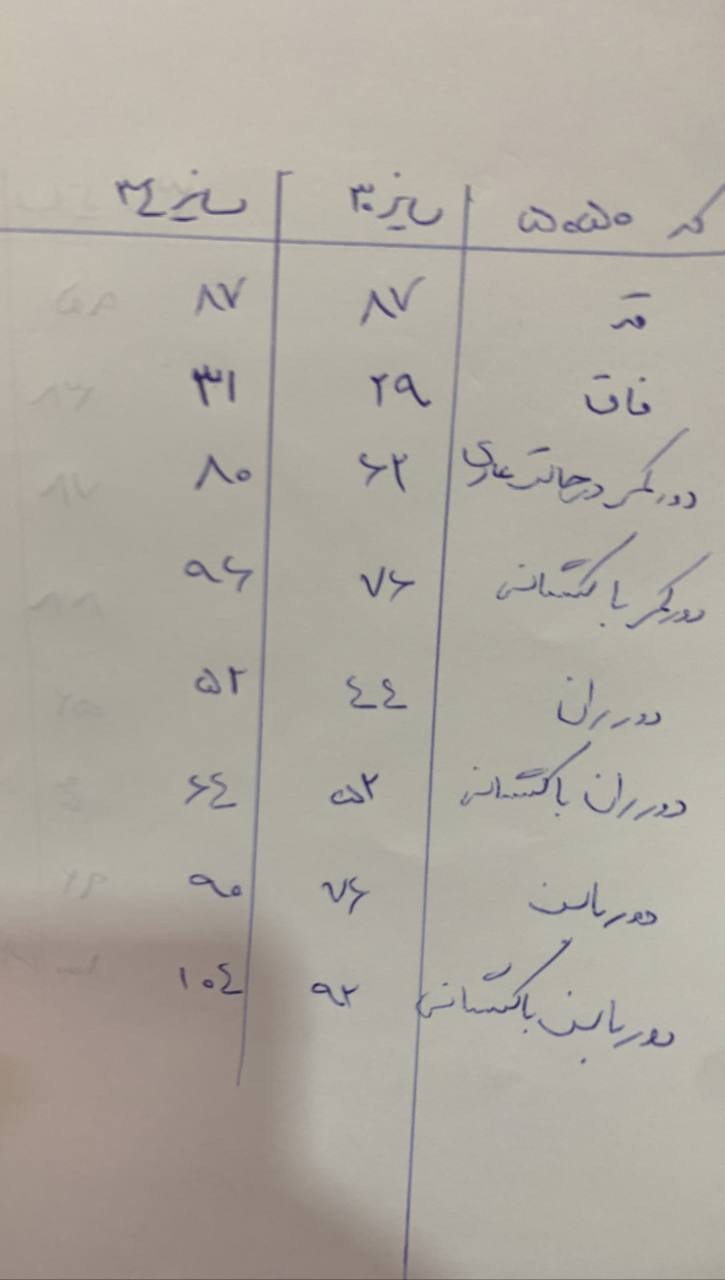 کد ۵۰۵۰ سایز ۳۰ سایز ۳٤
قد ۸۷ ۸۷
فاق ۲۹ ۳۱
دورکمر در حالت عادی ۶۲ ۸۰
دورکمر با کشسانی ۷۶ ۹۶
دور ران ٤٤ ۵۲
دور ران با کشسانی ۵۲ ۶٤
دور باسن ۷۶ ۹۰
دور باسن با کشسانی ۹۲ ۱۰٤